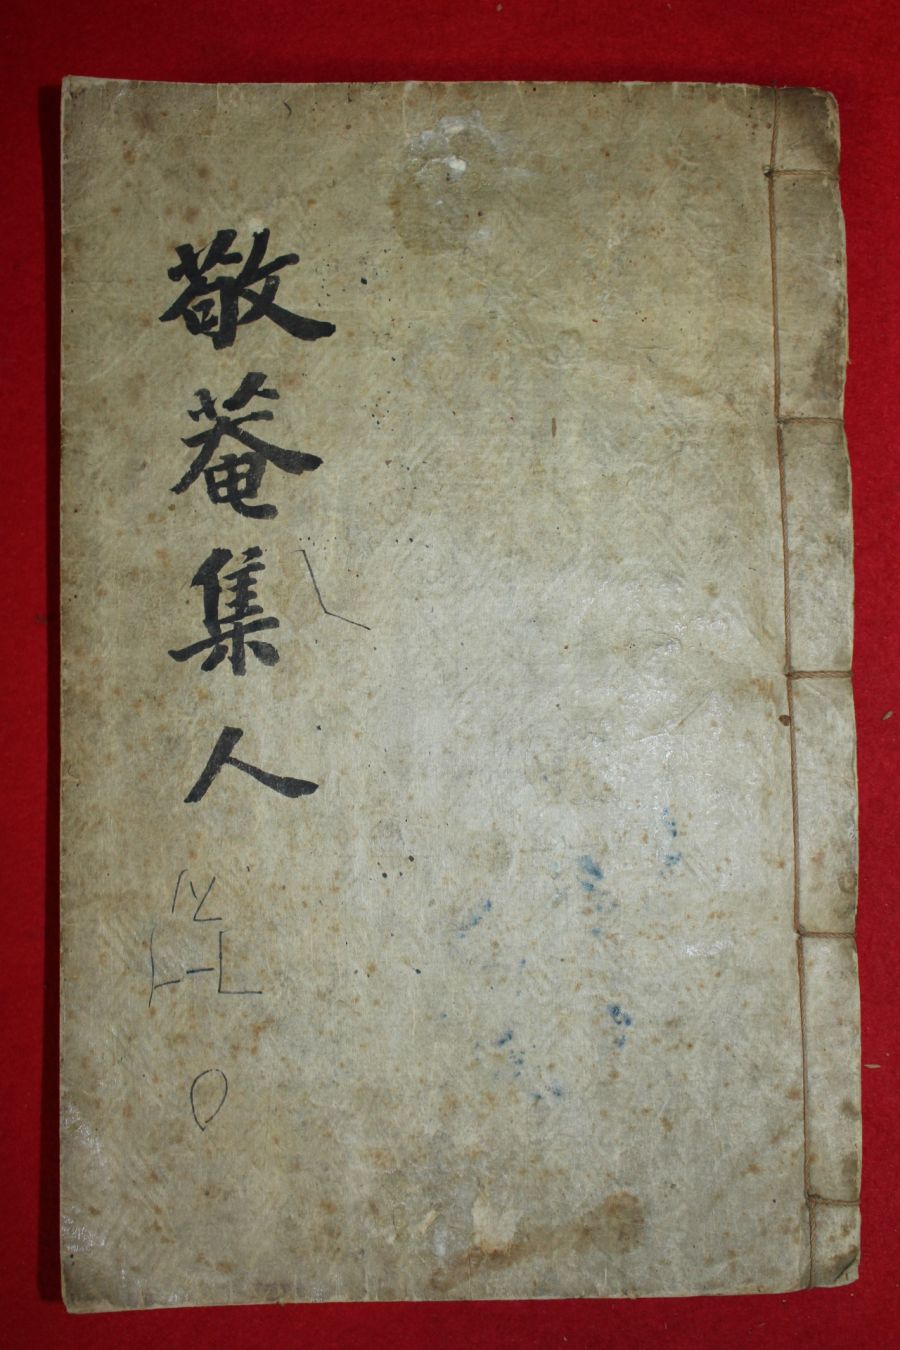 敬菴集人